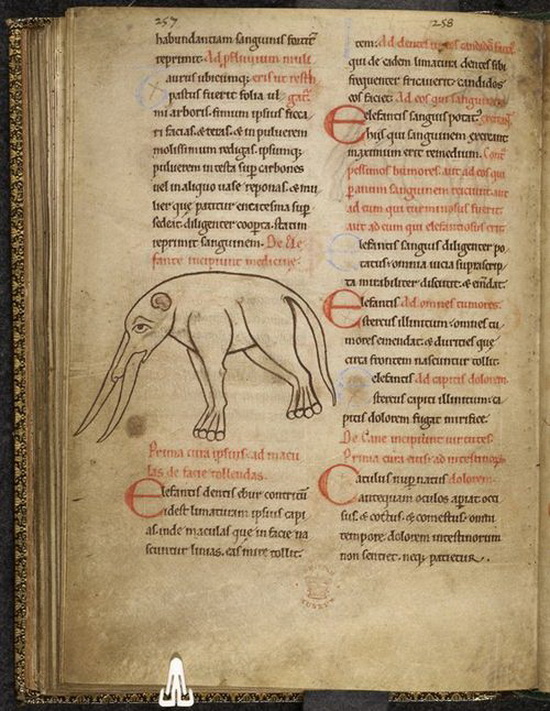 257
habundantiam sanguinis fortit̃
reprimit. Ad psiluium muli
aurus ubicumq; erisut resth
pastus fuerit folia ul gact̃.
mi arboris. fimum ipsius sicca
ri facias. & teras. & in puluerem
mollissimum redigas. ipsumq;
puluerem in testa sup carbones
uel in aliquo uase reponas. & mu
lier quę patitur encatesma sup
sedeat. diligenter cooperta. statim
reprimit sanguinem. De Ele
fante incipiunt medicinę.
Prima cura ipsius. ad macu
las de facie tollendas.
Elefantis dentis ebur contritũ
id est limaturam ipsius capi
as. inde maculas que in facie na
scuntur linias. eas mire tollit.
258
tem. Ad dentes ut candidos
qui de eadem limatura dentes sibi
frequenter fricauerit. candidos
eos faciet. Ad eos qui sanguinem
Elefantis sanguis potat̃
hijs qui sanguinem excreant
maximum erit remedium.
pessimos humores. aut ad eos qui
sanguinem reiciunt. aut
ad eum qui fuerit
aut ad eum qui elefantiosus erit
Elefantis sanguis diligenter po
tatus. omnia uicia suprascrip
ta mirabiliter discutit. & emdat.
Elefantis Ad omnes tumores.
stercus illinitum. omnes tu
mores emendat. & durities quę
circa frontem nascuntur tollit.
Elefantis Ad capitis dolorem.
stercus capiti illinitum. ca
pitis dolorem fugat mirifice.
De Cane incipiunt uirtutes.
Prima cura eius. ad intestinorũ
Catulus nup natus dolorem.
antequam oculos apiat. occi
sus. & coctus. & comestus. omni
tempore. dolorem intestinorum
non sentiet. neq; patietur.